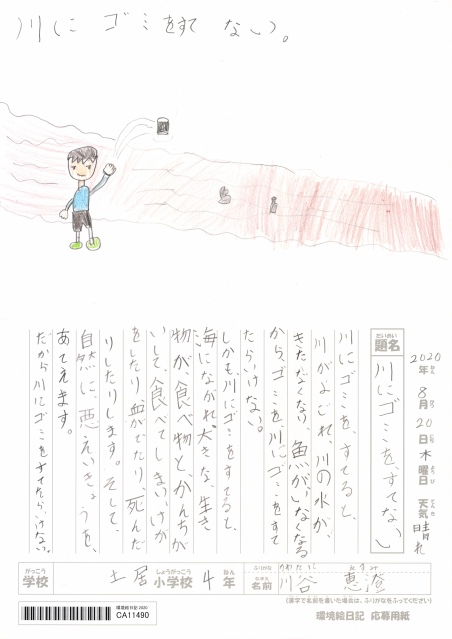 川に ゴミをすて ない。
2020年8月20日木曜日 天気 晴れ
だいめい
題名
川にゴミを、すてない
川にゴミを、すてると、
川がよごれ、川の水が、
きたなくなり、魚がいなくなる
から、ゴミを、川にゴミをすて
たらいけない。
しかも川にゴミをすてると、
海にながれ大きな、生き
物が、食べ物と、かんちが
いして、食べてしまいけが
をしたり、血がでたり、死んだ
りしたりします。そして、
自然に、悪えいきょうを、
あたえます。
だから川にゴミをすてたら、いけない。
がっこう
学校
土居
しょうがっこう
小学校
4
ねん
年
ふりがな
かわたに
なまえ
名前
川谷 恵澄
(漢字で名前を書いた場合は、ふりがなをふってください)
環境絵日記 2020
CA11490
環境絵日記 応募用紙